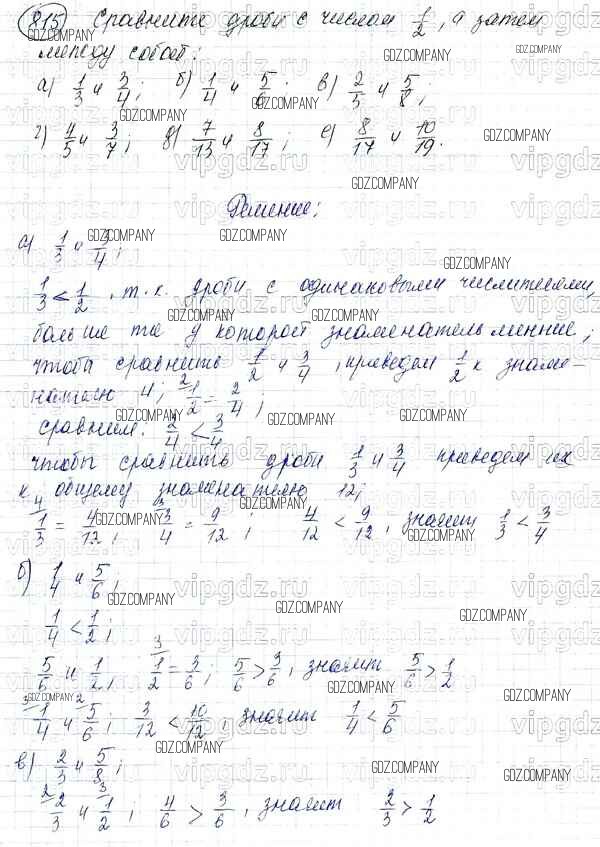 815 Сравните дроби с числом 1/2, а затем
между собой:
а) 1/3 и 3/4; б) 1/4 и 5/6; в) 2/5 и 5/8;
г) 4/5 и 3/7; д) 7/13 и 8/17; е) 8/17 и 10/19.
Решение:
а) 1/3 и 3/4;
1/3 < 1/2, т.к. дроби с одинаковыми числителями,
больше та у которой знаменатель меньше;
чтобы сравнить 1/2 и 3/4, приведем 1/2 к знаме-
нателю 4; 1/2 = 2/4;
сравним: 2/4 < 3/4
чтобы сравнить дроби 1/3 и 3/4 приведем их
к общему знаменателю 12;
1/3 = 4/12, 3/4 = 9/12; 4/12 < 9/12, значит 1/3 < 3/4
б) 1/4 и 5/6;
1/4 < 1/2;
5/6 и 1/2, 1/2 = 3/6; 5/6 > 3/6, значит 5/6 > 1/2
1/4 и 5/6; 3/12 < 10/12, значит 1/4 < 5/6
в) 2/3 и 5/8;
2/3 и 1/2; 4/6 > 3/6, значит 2/3 > 1/2
GDZ.COMPANY
vipgdz.ru